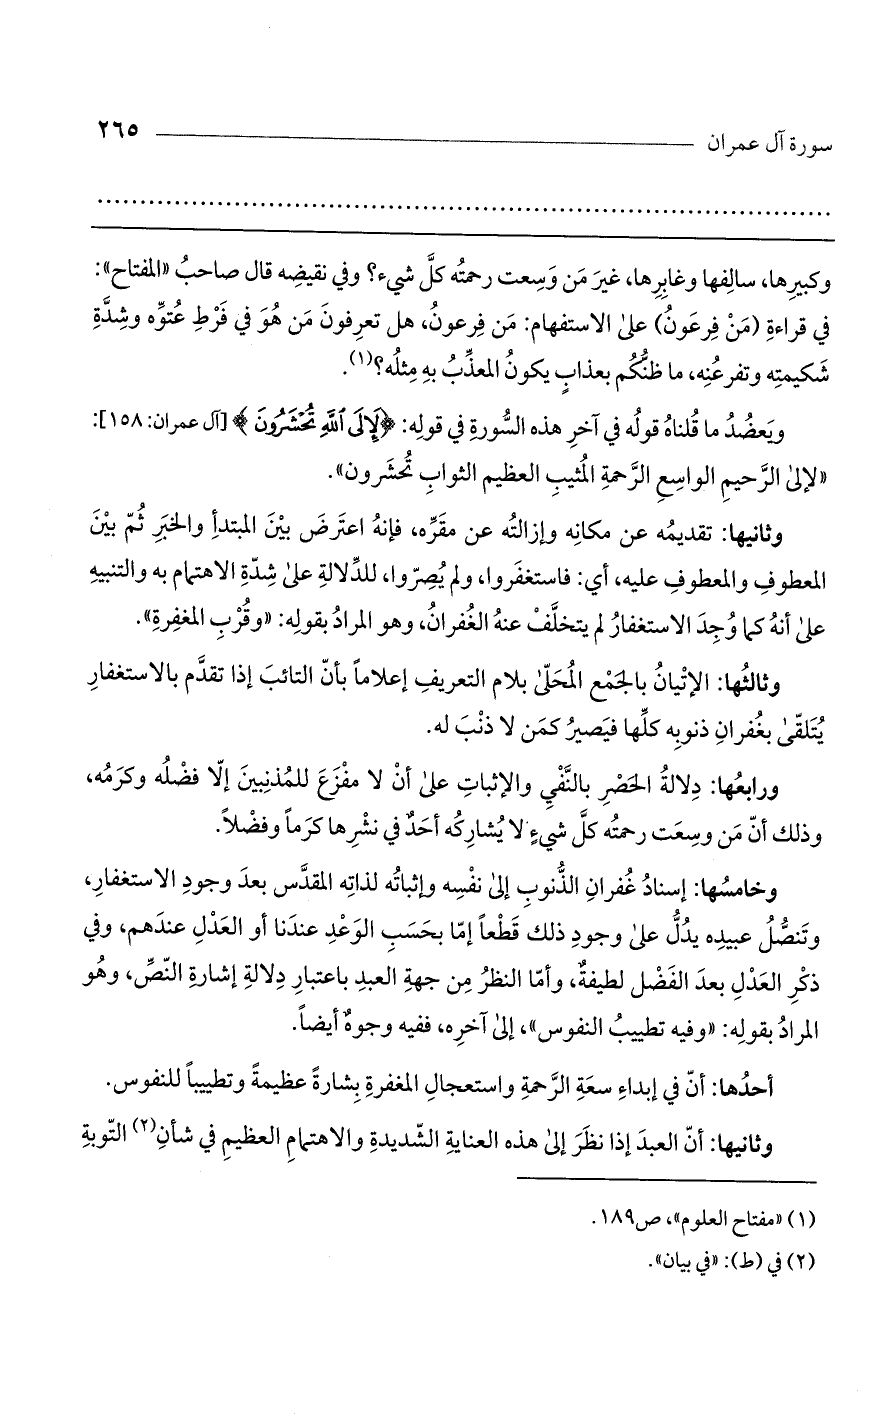 سورة آل عمران ٢٦٥
وكبيرِها، سالِفها وغابِرِها، غيرَ مَن وَسِعت رحمتُه كلَّ شيء؟ وفي نقيضِه قال صاحبُ «المفتاح»:
في قراءةِ (مَنْ فِرعَونُ) علىٰ الاستفهام: مَن فِرعونُ، هل تعرِفونَ مَن هُوَ في فَرْطِ عُتوِّه وشِدَّةِ
شَكيمتِه وتفرعُنِه، ما ظنُّكُم بعذابٍ يكونُ المعذِّبُ بهِ مِثلُه؟(١).
ويَعضُدُ ما قُلناهُ قولُه في آخرِ هذه السُّورةِ في قولِه: ﴿لَإِلَى ٱللَّهِ تُحْشَرُونَ﴾ [آل عمران: ١٥٨]:
«لإلىٰ الرَّحيمِ الواسِعِ الرَّحمةِ المُثيبِ العظيم الثوابِ تُحشَرون».
وثانيها: تقديمُه عن مكانِه وإزالتُه عن مقرِّه، فإنهُ اعترَضَ بيْنَ المبتدأِ والخبَرِ ثُمّ بيْنَ
المعطوفِ والمعطوفِ عليه، أي: فاستغفَروا، ولم يُصِرّوا، للدِّلالةِ علىٰ شِدّةِ الاهتمام به والتنبيهِ
علىٰ أنهُ كما وُجِدَ الاستغفارُ لم يتخلَّفْ عنهُ الغُفرانُ، وهو المرادُ بقولِه: «وقُرْبِ المغفِرةِ».
وثالثُها: الإتْيانُ بالجَمْع المُحَلّىٰ بلام التعريفِ إعلاماً بأنّ التائبَ إذا تقدَّم بالاستغفارِ
يُتَلقّىٰ بغُفرانِ ذنوبِه كلِّها فيَصيرُ كمَن لا ذنْبَ له.
ورابعُها: دِلالةُ الحَصْرِ بالنَّفْيِ والإثباتِ علىٰ أنْ لا مفْزَعَ للمُذنِبينَ إلّا فضْلُه وكرَمُه،
وذلك أنّ مَن وسِعَت رحمتُه كلَّ شيءٍ لا يُشارِكُه أحَدٌ في نشْرِها كرَماً وفضْلاً.
وخامسُها: إسنادُ غُفرانِ الذُّنوبِ إلىٰ نفْسِه وإثباتُه لذاتِه المقدَّس بعدَ وجودِ الاستغفارِ،
وتَنصُّلُ عبيدِه يدُلُّ علىٰ وجودِ ذلك قَطْعاً إمّا بحَسَبِ الوَعْدِ عندَنا أو العَدْلِ عندَهم، وفي
ذكْرِ العَدْلِ بعدَ الفَضْل لطيفةٌ، وأمّا النظرُ مِن جهةِ العبدِ باعتبارِ دِلالةِ إشارةِ النّصِّ، وهُو
المرادُ بقولِه: «وفيه تطييبُ النفوس»، إلىٰ آخرِه، ففيه وجوهٌ أيضاً.
أحدُها: أنّ في إبداءِ سعَةِ الرَّحمةِ واستعجالِ المغفرةِ بِشارةً عظيمةً وتطييباً للنفوس.
وثانيها: أنّ العبدَ إذا نظَرَ إلىٰ هذه العنايةِ الشّديدةِ والاهتمامِ العظيمِ في شأنِ(٢) التّوبةِ
(١) «مفتاح العلوم»، ص١٨٩.
(٢) في (ط): «في بيان».